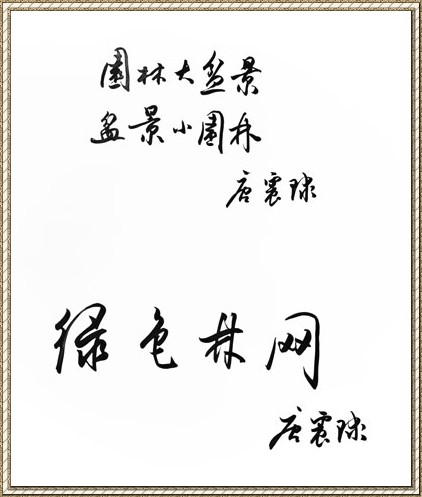 園林大盆景
盆景小園林
唐震球
绿色林网
唐震球